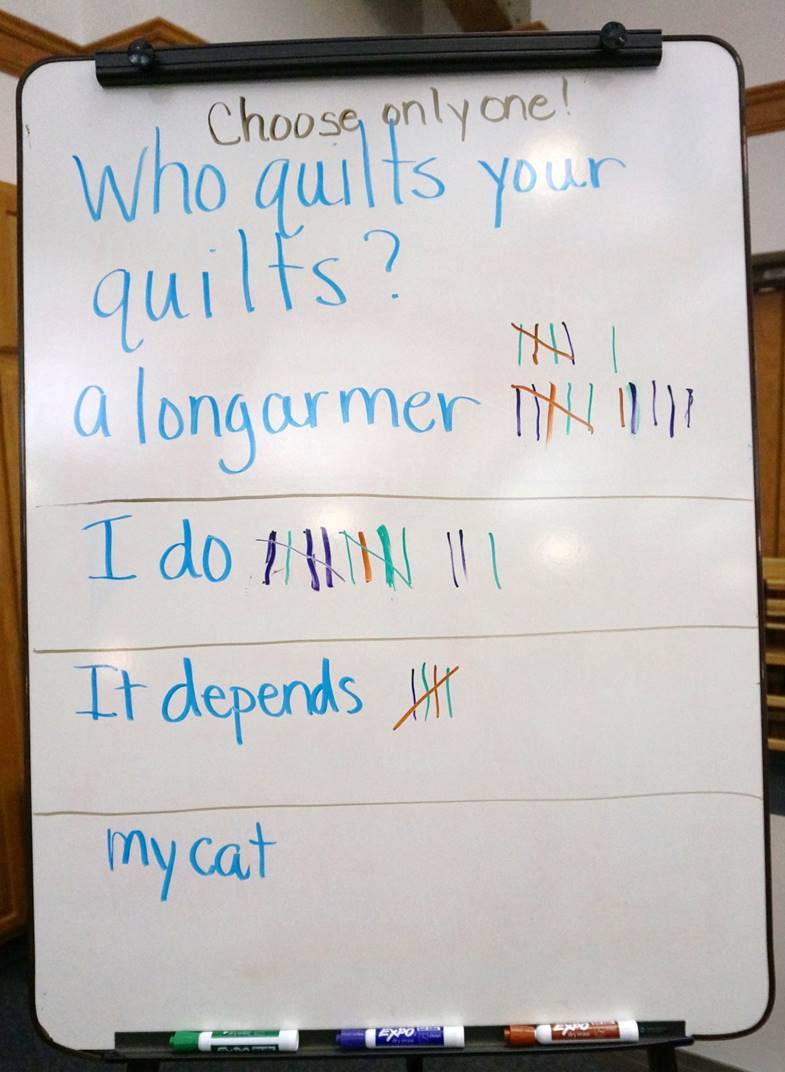 Choose only one!
Who quilts your
quilts?
a longarmer
I do
It depends
my cat
EXPO
EXPO
EXPO